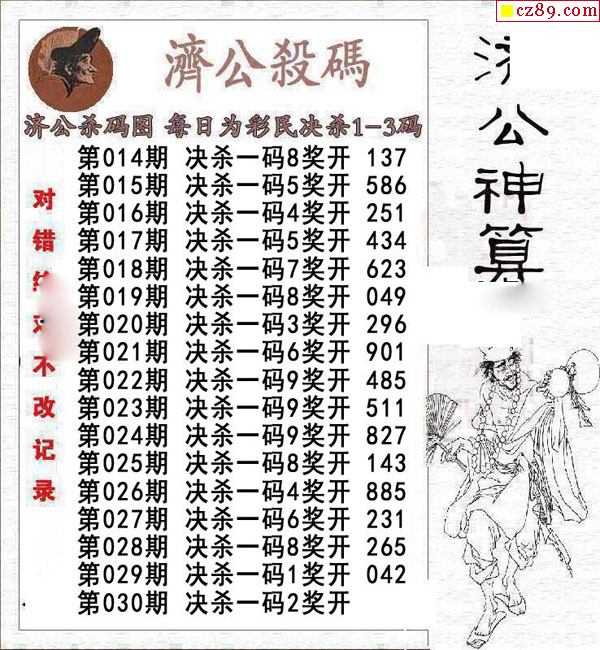 cz89.com
濟公殺碼
济公杀码图 每日为彩民决杀1-3码
第014期 决杀一码8奖开 137
第015期 决杀一码5奖开 586
第016期 决杀一码4奖开 251
第017期 决杀一码5奖开 434
第018期 决杀一码7奖开 623
第019期 决杀一码8奖开 049
第020期 决杀一码3奖开 296
第021期 决杀一码6奖开 901
第022期 决杀一码9奖开 485
第023期 决杀一码9奖开 511
第024期 决杀一码9奖开 827
第025期 决杀一码8奖开 143
第026期 决杀一码4奖开 885
第027期 决杀一码6奖开 231
第028期 决杀一码8奖开 265
第029期 决杀一码1奖开 042
第030期 决杀一码2奖开
对错 不改记录
公神算